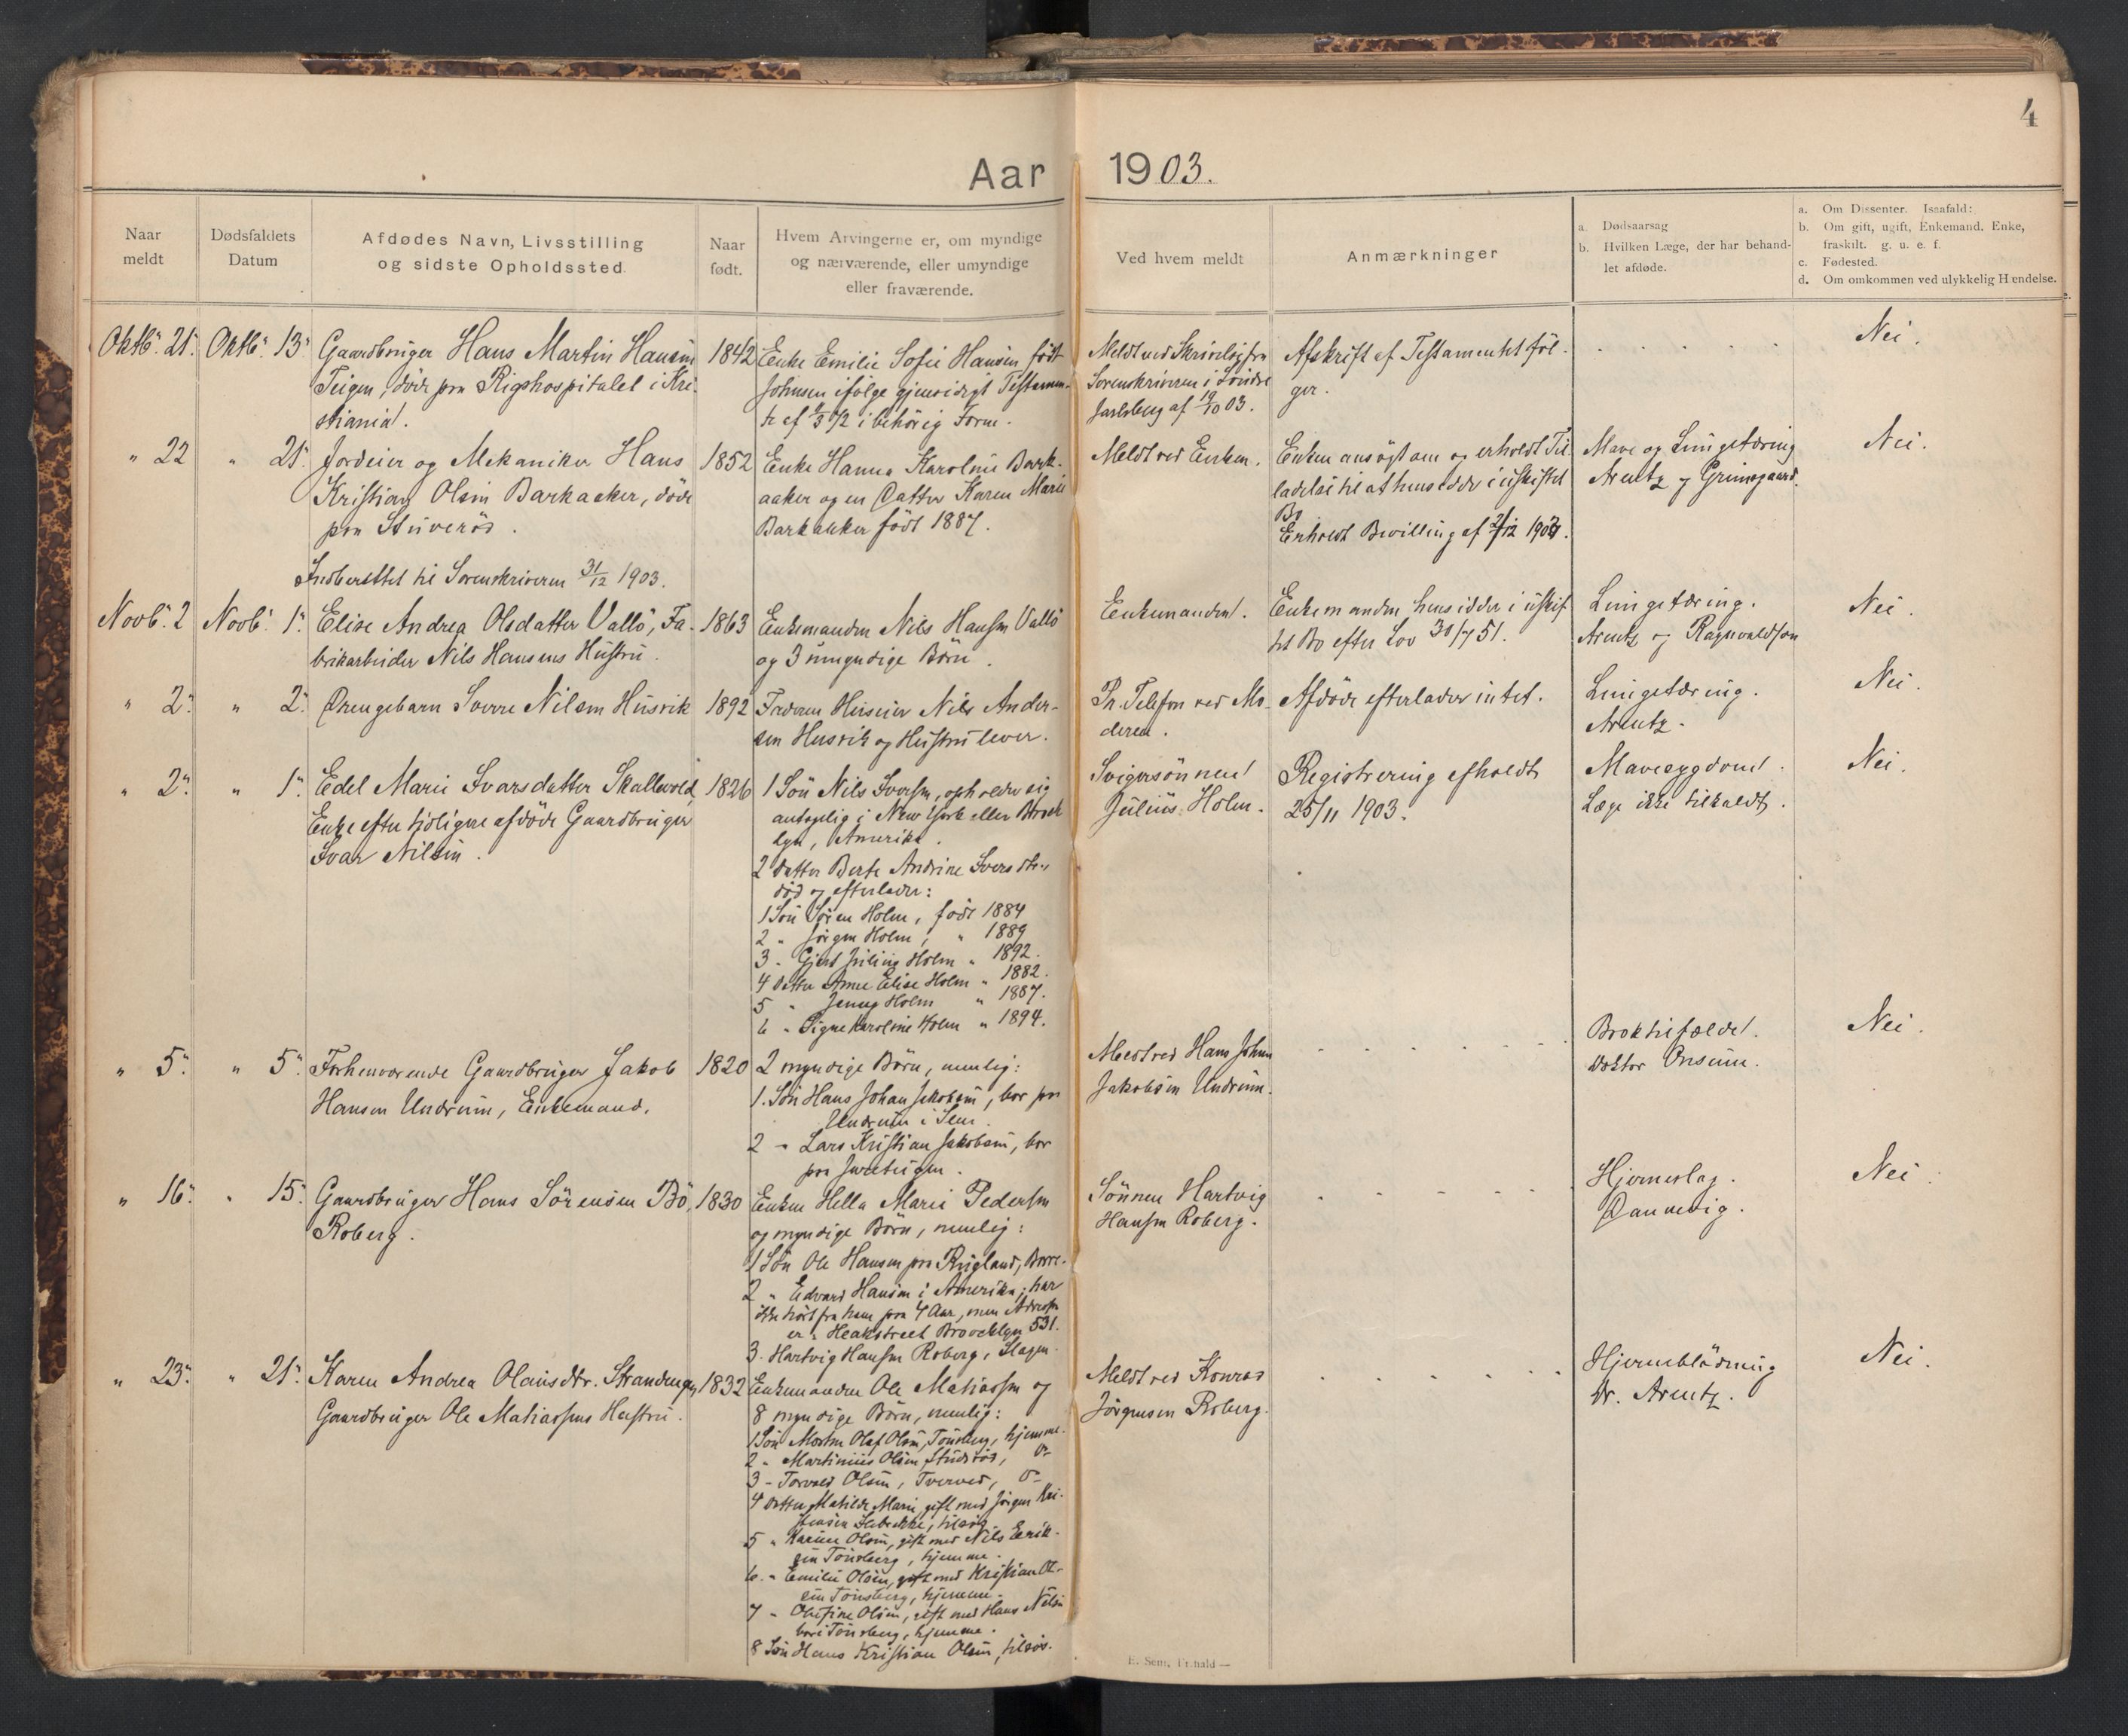 4
Aar 1903.
Naar meldt
Dødsfaldets Datum
Afdødes Navn, Livsstilling og sidste Opholdssted.
Naar født.
Hvem Arvingerne er, om myndige og nærværende, eller umyndige eller fraværende.
Ved hvem meldt
Anmærkninger
a. Dødsaarsag
b. Hvilken Læge, der har behandlet afdøde.
a. Om Dissenter. Isaafald:
b. Om gift, ugift, Enkemand, Enke, fraskilt. g. u. e. f.
c. Fødested.
d. Om omkommen ved ulykkelig Hændelse.
Oktb. 21. Oktb. 13.
Gaardbruger Hans Martin Hansen
Teigen, döde paa Rigshospitalet i Kri-
stiania.
1842
Enke Emilie Sofie Hansen född
Johnsen ifölge gjensidigt Testamen-
te af 72 i behörig Form.
Meldt ved Skrivelse fra
Sorenskriveren i Söndre
Jarlsberg af 19/10 03.
Afskrift af Testamentet föl-
ger.
Nei.
" 22 " 21.
Jordeier og Mekaniker Hans
Kristian Olsen Barkaaker, döde
paa Stuveröd.
Indberettet til Sorenskriveren 31/12 1903.
1852
Enke Hanna Karoline Bark-
aaker og en Datter Karen Marie
Barkaaker född 1887.
Meldt ved Enken.
Enken ansögt om og erholdt Til-
ladelse til at hensidde i uskiftet
Bo
Erholdt Bevilling af 2/12 1903.
Mave og Lungetæring
Arentz og Grimsgaard.
Nei.
Novb. 2 Novb. 1.
Elise Andrea Olsdatter Vallö, Fa-
brikarbeider Nils Hansens Hustru.
1863
Enkemanden Nils Hansen Vallö
og 3 umyndige Börn.
Enkemanden.
Enkemanden hensidder i uskif-
tet Bo efter Lov 30/7 51.
Lungetæring.
Arentz og Ragnvaldson
Nei.
" 2. " 2.
Drengebarn Sverre Nilsen Husvik
1892
Faderen Huseier Nils Ander-
sen Husvik og Hustru lever.
Pr. Telefon ved Mo-
deren.
Afdöde efterlader intet.
Lungetæring.
Arentz.
Nei.
" 2. " 1.
Edel Marie Ivarsdatter Skallevold,
Enke efter tidligere afdöde Gaardbruger
Ivar Nilsen.
1826
1 Sön Nils Iversen, opholder sig
antagelig i New York eller Brook-
lyn, Amerika.
2 Datter Berte Andrine Iversdtr.
död og efterlader:
1 Sön Sören Holm, född 1884
2 " Jörgen Holm, " 1889
3 " Gjert Julius Holm " 1892.
4 Datter Anne Elise Holm " 1882.
5 " Jenny Holm " 1887.
6 " Signe Karoline Holm " 1894.
Svigersönnen
Julius Holm.
Registrering afholdt
25/11 1903.
Mavesygdom.
Læge ikke tilkaldt.
Nei.
" 5. " 5.
Forhenværende Gaardbruger Jakob
Hansen Undrum, Enkemand.
1820
2 myndige Börn, nemlig:
1. Sön Hans Johan Jakobsen, bor paa
Undrum i Sem.
2 " Lars Kristian Jakobsen, bor
paa
Meldt ved Hans Johan
Jakobsen Undrum.
Broktilfælde.
Doktor Onsum.
Nei.
" 16. " 15.
Gaardbruger Hans Sörensen Bö,
Roberg.
1830
Enken Hella Marie Pedersen
og myndige Börn, nemlig:
1 Sön Ole Hansen paa Rugland, Borre.
2 " Edvard Hansen i Amerika; har
ikke hört fra ham paa 4 Aar, men Adressen
er " Brooklyn 531.
3. Hartvig Hansen Roberg, Slagen.
Sönnen Hartvig
Hansen Roberg.
Hjerneslag.
Dannevig.
Nei.
" 23. " 21.
Karen Andrea Olausdtr. Strandengen,
Gaardbruger Ole Matiassens Hustru.
1832
Enkemanden Ole Matiassen og
8 myndige Börn, nemlig:
1 Sön Morten Olaf Olsen, Tönsberg, hjemme.
2 " Martinius Olsen
3 " Torvald Olsen, Tverved,
4 Datter Matilde Marie, gift med Jörgen Kri-
stensen tilsös
5 " Karine Olsen, gift med Nils Erik-
sen Tönsberg, hjemme.
6. " Emilie Olsen, gift med Kristian Ol-
sen Tönsberg, hjemme.
7 " Olefine Olsen, gift med Hans Nilsen
bor i Tönsberg, hjemme.
8 Sön Hans Kristian Olsen, tilsös.
Meldt ved Konrad
Jörgensen Roberg.
Hjerneblödning
Dr. Arentz.
Nei.
E. Sem, Fr.hald —